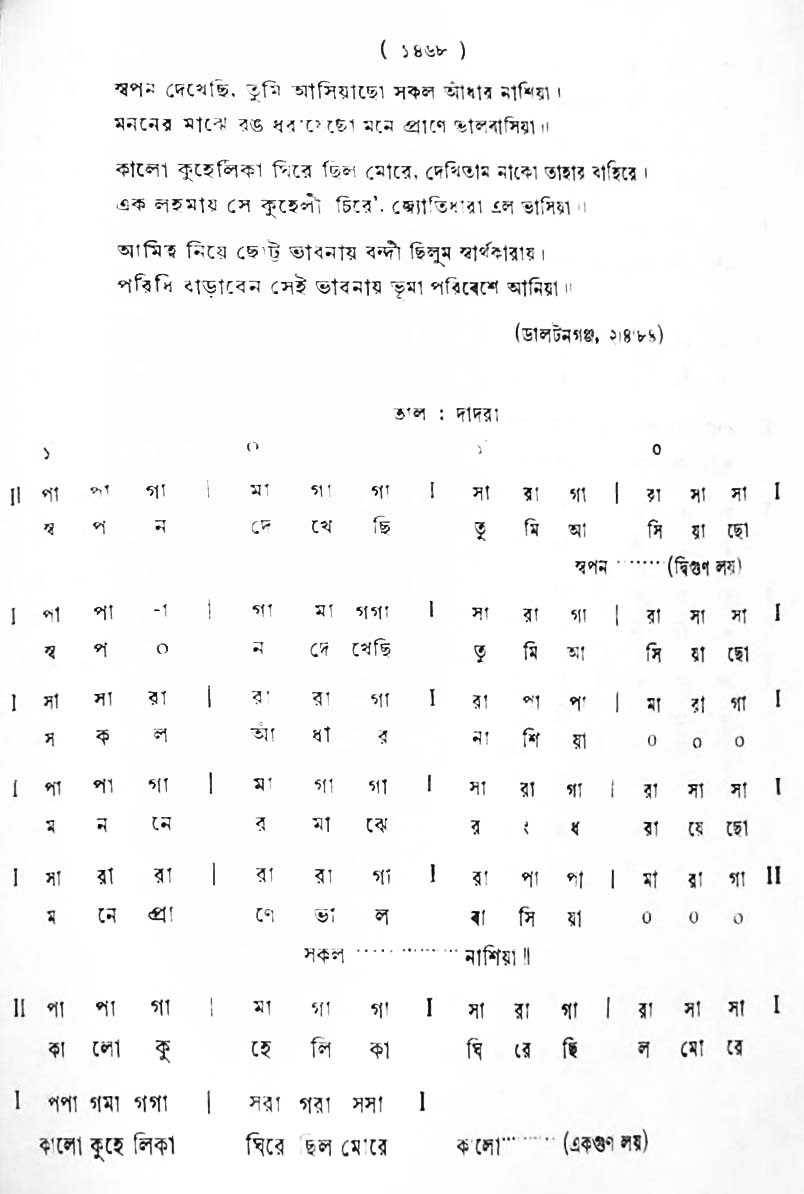 ( ১৪৬৮ )
স্বপন দেখেছি, তুমি আসিয়াছো সকল আঁধার নাশিয়া।
মননের মাঝে রঙ ধরায়েছো মনে প্রাণে ভালবাসিয়া॥
কালো কুহেলিকা ঘিরে ছিল মোরে, দেখিতাম নাকো তাহার বাহিরে।
এক লহমায় সে কুহেলী চিরে', জ্যোতিধারা এল ভাসিয়া॥
আমিত্ব নিয়ে ছোট্ট ভাবনায় বন্দী ছিলুম স্বার্থকারায়।
পরিধি বাড়াবেন সেই ভাবনায় ভূমা পরিবেশে আনিয়া॥
(ডালটনগঞ্জ, ২।৪।৮৪)
তাল : দাদরা
১ ০ ১ ০
II পা পা গা | মা গা গা I সা রা গা | রা সা সা I
স্ব প ন দে খে ছি তু মি আ সি য়া ছো
স্বপন ······· (দ্বিগুণ লয়)
I পা পা -া | গা মা গগা I সা রা গা | রা সা সা I
স্ব প ০ ন দে খেছি তু মি আ সি য়া ছো
I সা সা রা | রা রা গা I রা পা পা | মা রা গা I
স ক ল আঁ ধা র না শি য়া ০ ০ ০
I পা পা গা | মা গা গা I সা রা গা | রা সা সা I
ম ন নে র মা ঝে র ং ধ রা য়ে ছো
I সা রা রা | রা রা গা I রা পা পা | মা রা গা II
ম নে প্রা ণে ভা ল বা সি য়া ০ ০ ০
সকল ············· নাশিয়া॥
II পা পা গা | মা গা গা I সা রা গা | রা সা সা I
কা লো কু হে লি কা ঘি রে ছি ল মো রে
I পপা গমা গগা | সরা গরা সসা I
কালো কুহে লিকা ঘিরে ছিল মোরে কালো········· (একগুণ লয়)